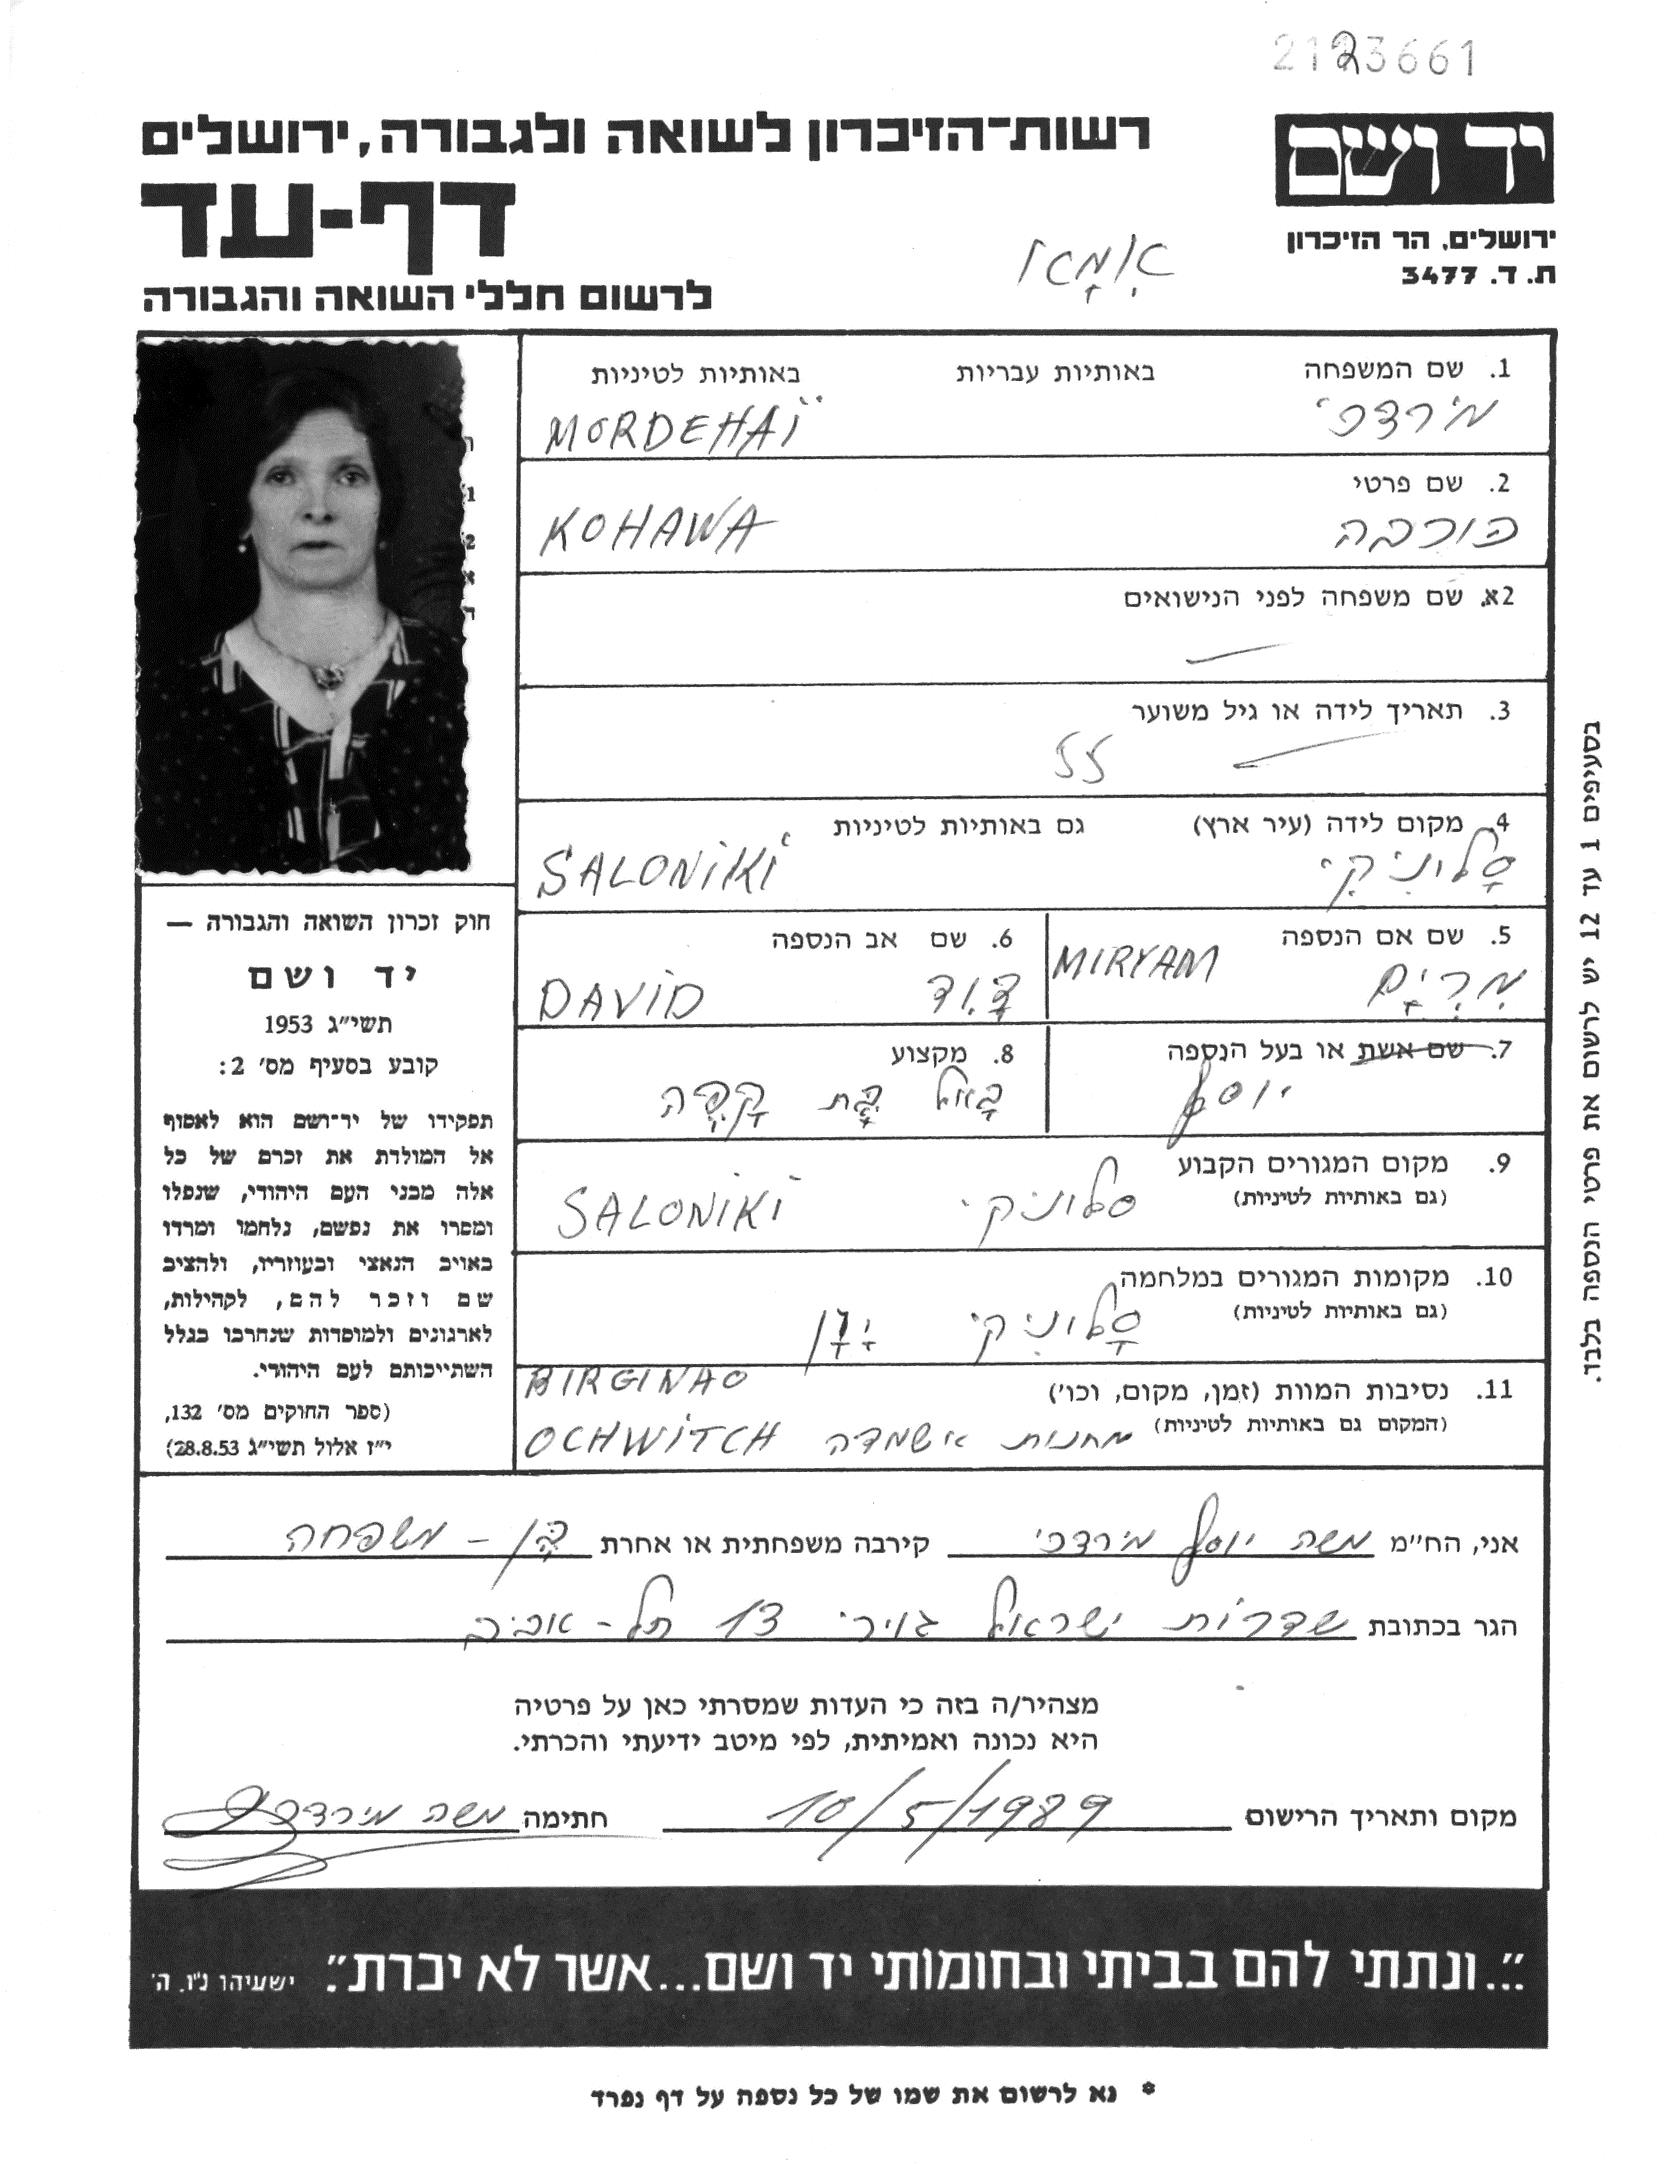 2123661
רשות־הזיכרון לשואה ולגבורה, ירושלים
יד ושם
דף-עד
ירושלים, הר הזיכרון
ת. ד. 3477
לרשום חללי השואה והגבורה
1. שם המשפחה באותיות עבריות באותיות לטיניות
מורדכי MORDEHAÏ
2. שם פרטי
כוכבה KOHAWA
2א. שם משפחה לפני הנישואים
3. תאריך לידה או גיל משוער
55
4. מקום לידה (עיר ארץ) גם באותיות לטיניות
סָלוניקִי SALONIKI
5. שם אם הנספה
מִרְיָם MIRYAM
6. שם אב הנספה
דָוִד DAVID
7. שם אשת או בעל הנספה
יוסף
8. מקצוע
9. מקום המגורים הקבוע
(גם באותיות לטיניות)
סלוניקי SALONIKI
10. מקומות המגורים במלחמה
(גם באותיות לטיניות)
סָלוניקי יָוָן
11. נסיבות המוות (זמן, מקום, וכו')
(המקום גם באותיות לטיניות)
BIRGINAO
מחנות אשמדה OCHWITCH
חוק זכרון השואה והגבורה —
יד ושם
תשי״ג 1953
קובע בסעיף מס׳ 2:
תפקידו של יד־ושם הוא לאסוף
אל המולדת את זכרם של כל
אלה מבני העם היהודי, שנפלו
ומסרו את נפשם, נלחמו ומרדו
באויב הנאצי ובעוזריו, ולהציב
שם וזכר להם, לקהילות,
לארגונים ולמוסדות שנחרבו בגלל
השתייכותם לעם היהודי.
(ספר החוקים מס׳ 132,
י״ז אלול תשי״ג 28.8.53)
בסעיפים 1 עד 12 יש לרשום את פרטי הנספה בלבד.
אני, הח״מ משה יוסף מורדכי קירבה משפחתית או אחרת בן - משפחה
הגר בכתובת שדרות ישראל גורי 13 תל-אביב
מצהיר/ה בזה כי העדות שמסרתי כאן על פרטיה
היא נכונה ואמיתית, לפי מיטב ידיעתי והכרתי.
מקום ותאריך הרישום 10/5/1989 חתימה משה מורדכי
״...ונתתי להם בביתי ובחומותי יד ושם...אשר לא יכרת״. ישעיהו נ״ו, ה׳
* נא לרשום את שמו של כל נספה על דף נפרד